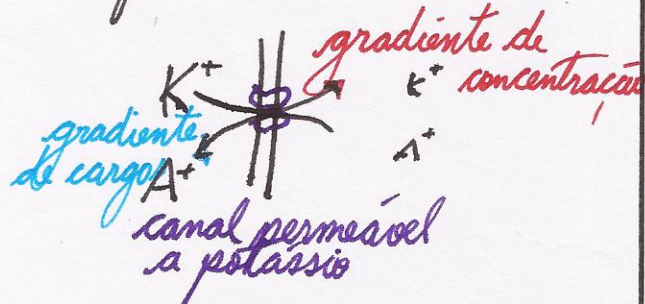 gradiente de
concentração
K⁺
K⁺
gradiente
de cargas
A⁺
A⁺
canal permeável
a potássio